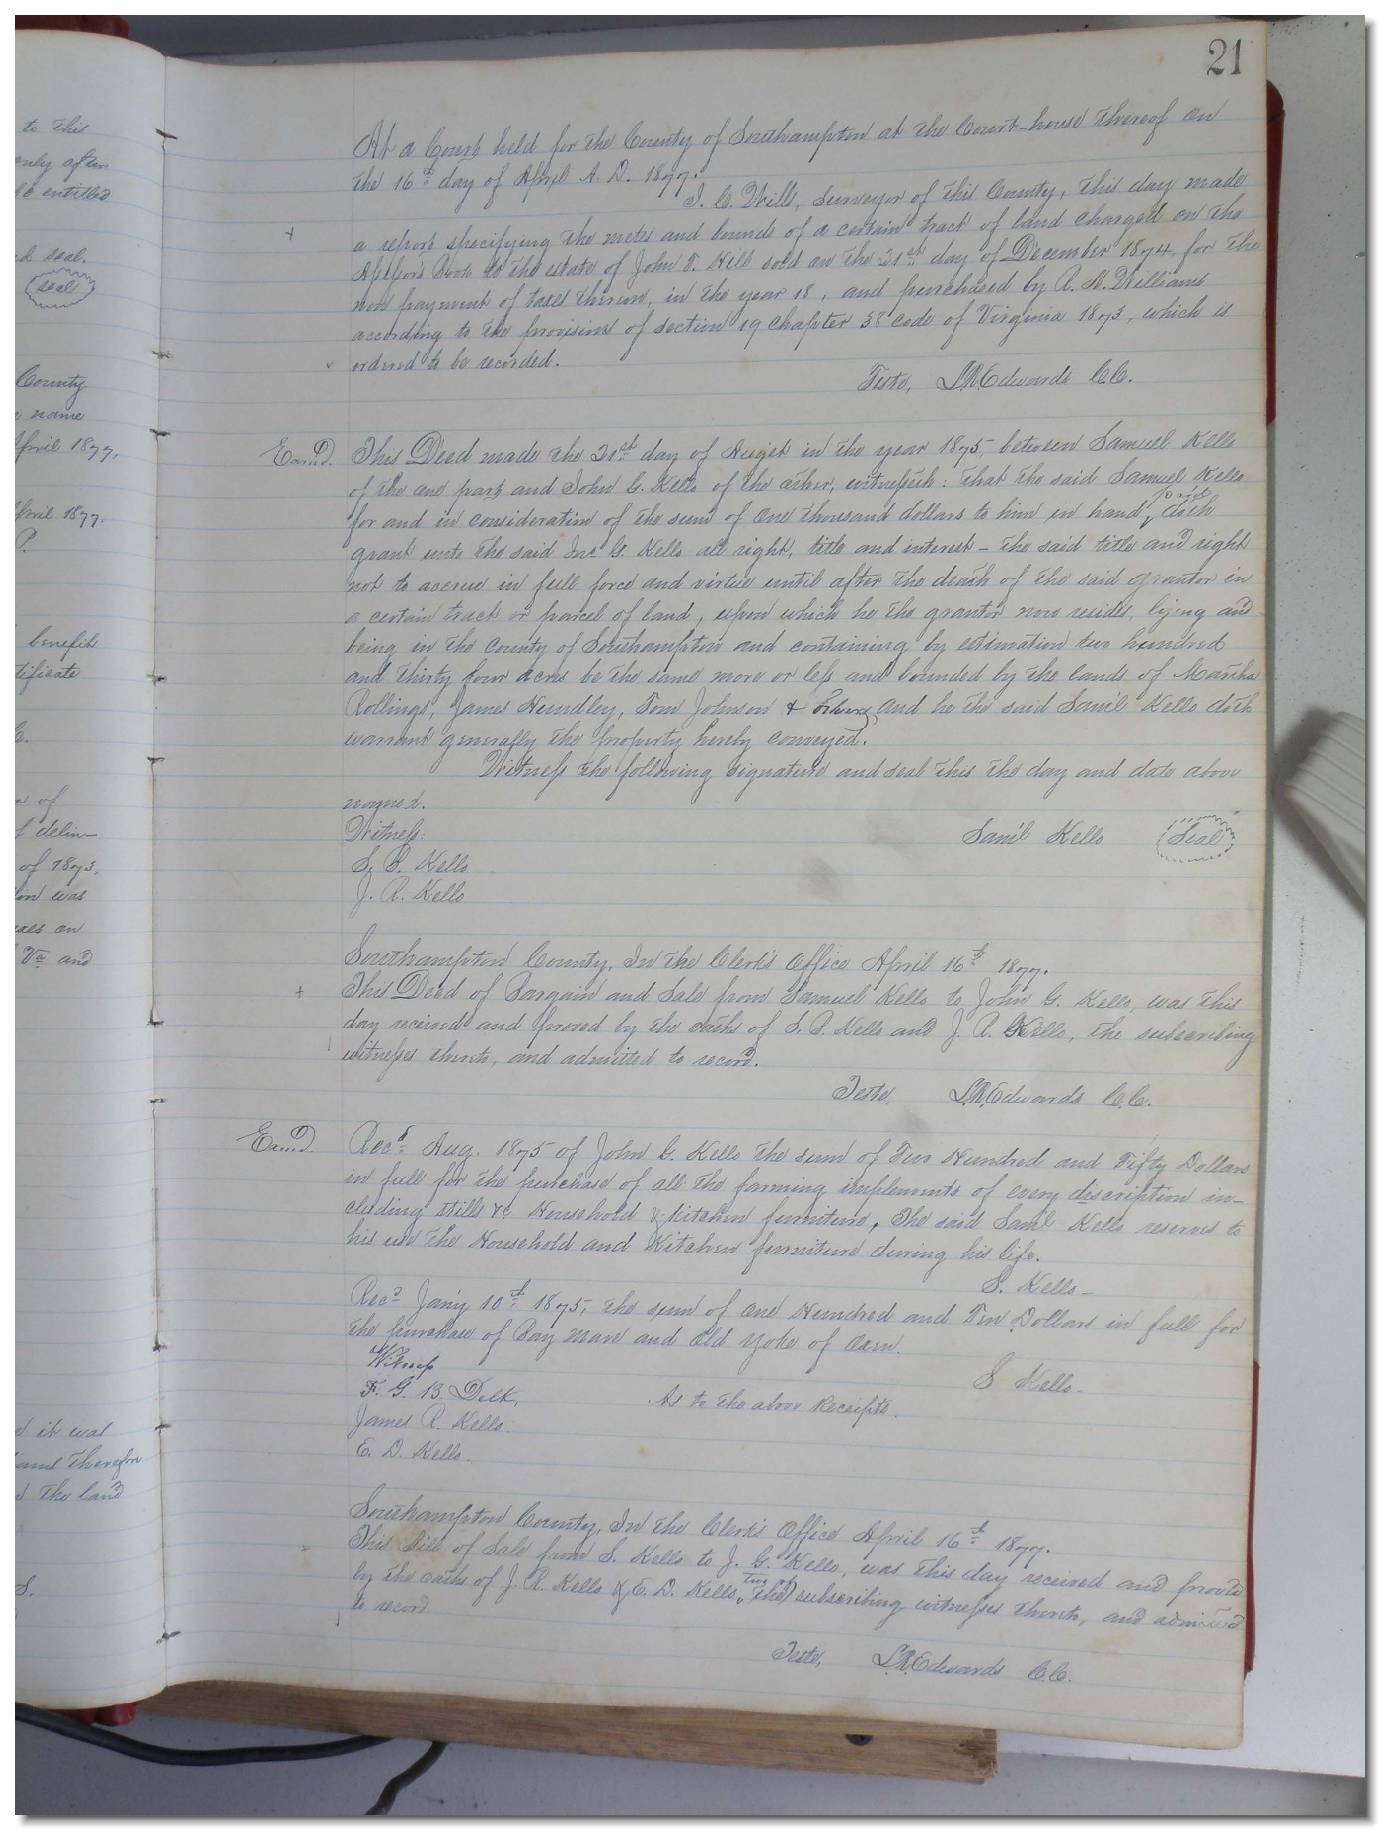 21
to this
only after
be entitled
seal.
seal
County
name
April 1877,
April 1877.
P.
benefit
tificate
of
delin-
of 1873,
was
on
Va and
it was
and therefore
the land
S.
At a Court held for the County of Southampton at the Court-house thereof on
the 16th day of April A. D. 1877.
Wills, surveyor of this County, this day made
a report specifying the metes and bounds of a certain tract of land charged on the
Assessor's Book to the estate of John T. sold on the 21st day of December 1874, for the
non payment of taxes thereon, in the year 18 , and purchased by R. H. Williams
according to the provisions of section 19 chapter 38 code of Virginia 1873, which is
ordered to be recorded.
Teste, L.R. Edwards C.C.
Examd.
This Deed made the 21st day of August in the year 1875, between Samuel Kello
of the one part and John G. Kello of the other, witnesseth: that the said Samuel Kello
for and in consideration of the sum of one thousand dollars to him in hand paid doth
grant unto the said Jno G. Kello all right, title and interest - the said title and right
not to accrue in full force and virtue until after the death of the said grantor in
a certain tract or parcel of land, upon which he the grantor now resides, lying and
being in the county of Southampton and containing by estimation two hundred
and thirty four acres be the same more or less and bounded by the lands of Martha
Rollings, James Hundley, Tom Johnson & others, and he the said Sam'l Kello doth
warrant generally the property hereby conveyed.
Witness the following signature and seal this the day and date above
named.
Witness: Sam'l Kello Seal
S. B. Kello
J. R. Kello
Southampton County, In the Clerk's Office April 16th 1877.
This Deed of Bargain and Sale from Samuel Kello to John G. Kello, was this
day received and proved by the oaths of S. B. Kello and J. R. Kello, the subscribing
witnesses thereto, and admitted to record.
Teste L.R. Edwards C.C.
Examd.
Recd Aug. 1875 of John G. Kello the sum of Two Hundred and Fifty Dollars
in full for the purchase of all the farming implements of every discription in-
cluding stills &c Household & kitchen furniture, The said Saml Kello reserves to
his use the Household and Kitchen furniture during his life.
S. Kello-
Recd Jan'y 10th 1875, the sum of One Hundred and Ten Dollars in full for
the purchase of Bay mare and old yoke of oxen.
Witness S Kello-
F. G. B Delk, As to the above Receipts.
James R. Kello.
E. D. Kello.
Southampton County, In the Clerk's Office April 16th 1877.
This Bill of Sale from S. Kello to J. G. Kello, was this day received and proved
by the oaths of J. R. Kello & E. D. Kello, two of the subscribing witnesses thereto, and admitted
to record
Teste, L.R. Edwards C.C.